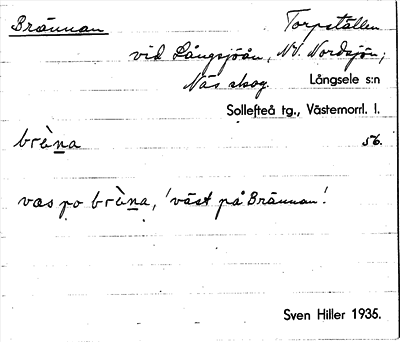 Brännan Torpställen
vid Långsjöån, NV. Nordsjön,
Näs skog. Långsele s:n
Sollefteå tg., Västernorrl. l.
brɛ̀na 56.
vas po brɛ̀na, 'väst på Brännan'.
Sven Hiller 1935.